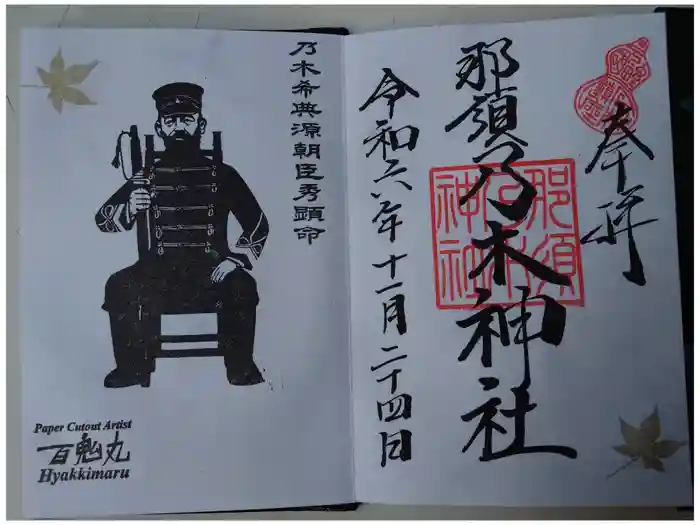 奉拝
那須乃木神社
那須
乃木
神社
令和六年十一月二十四日
乃木希典源朝臣秀顕命
Paper Cutout Artist
百鬼丸
Hyakkimaru